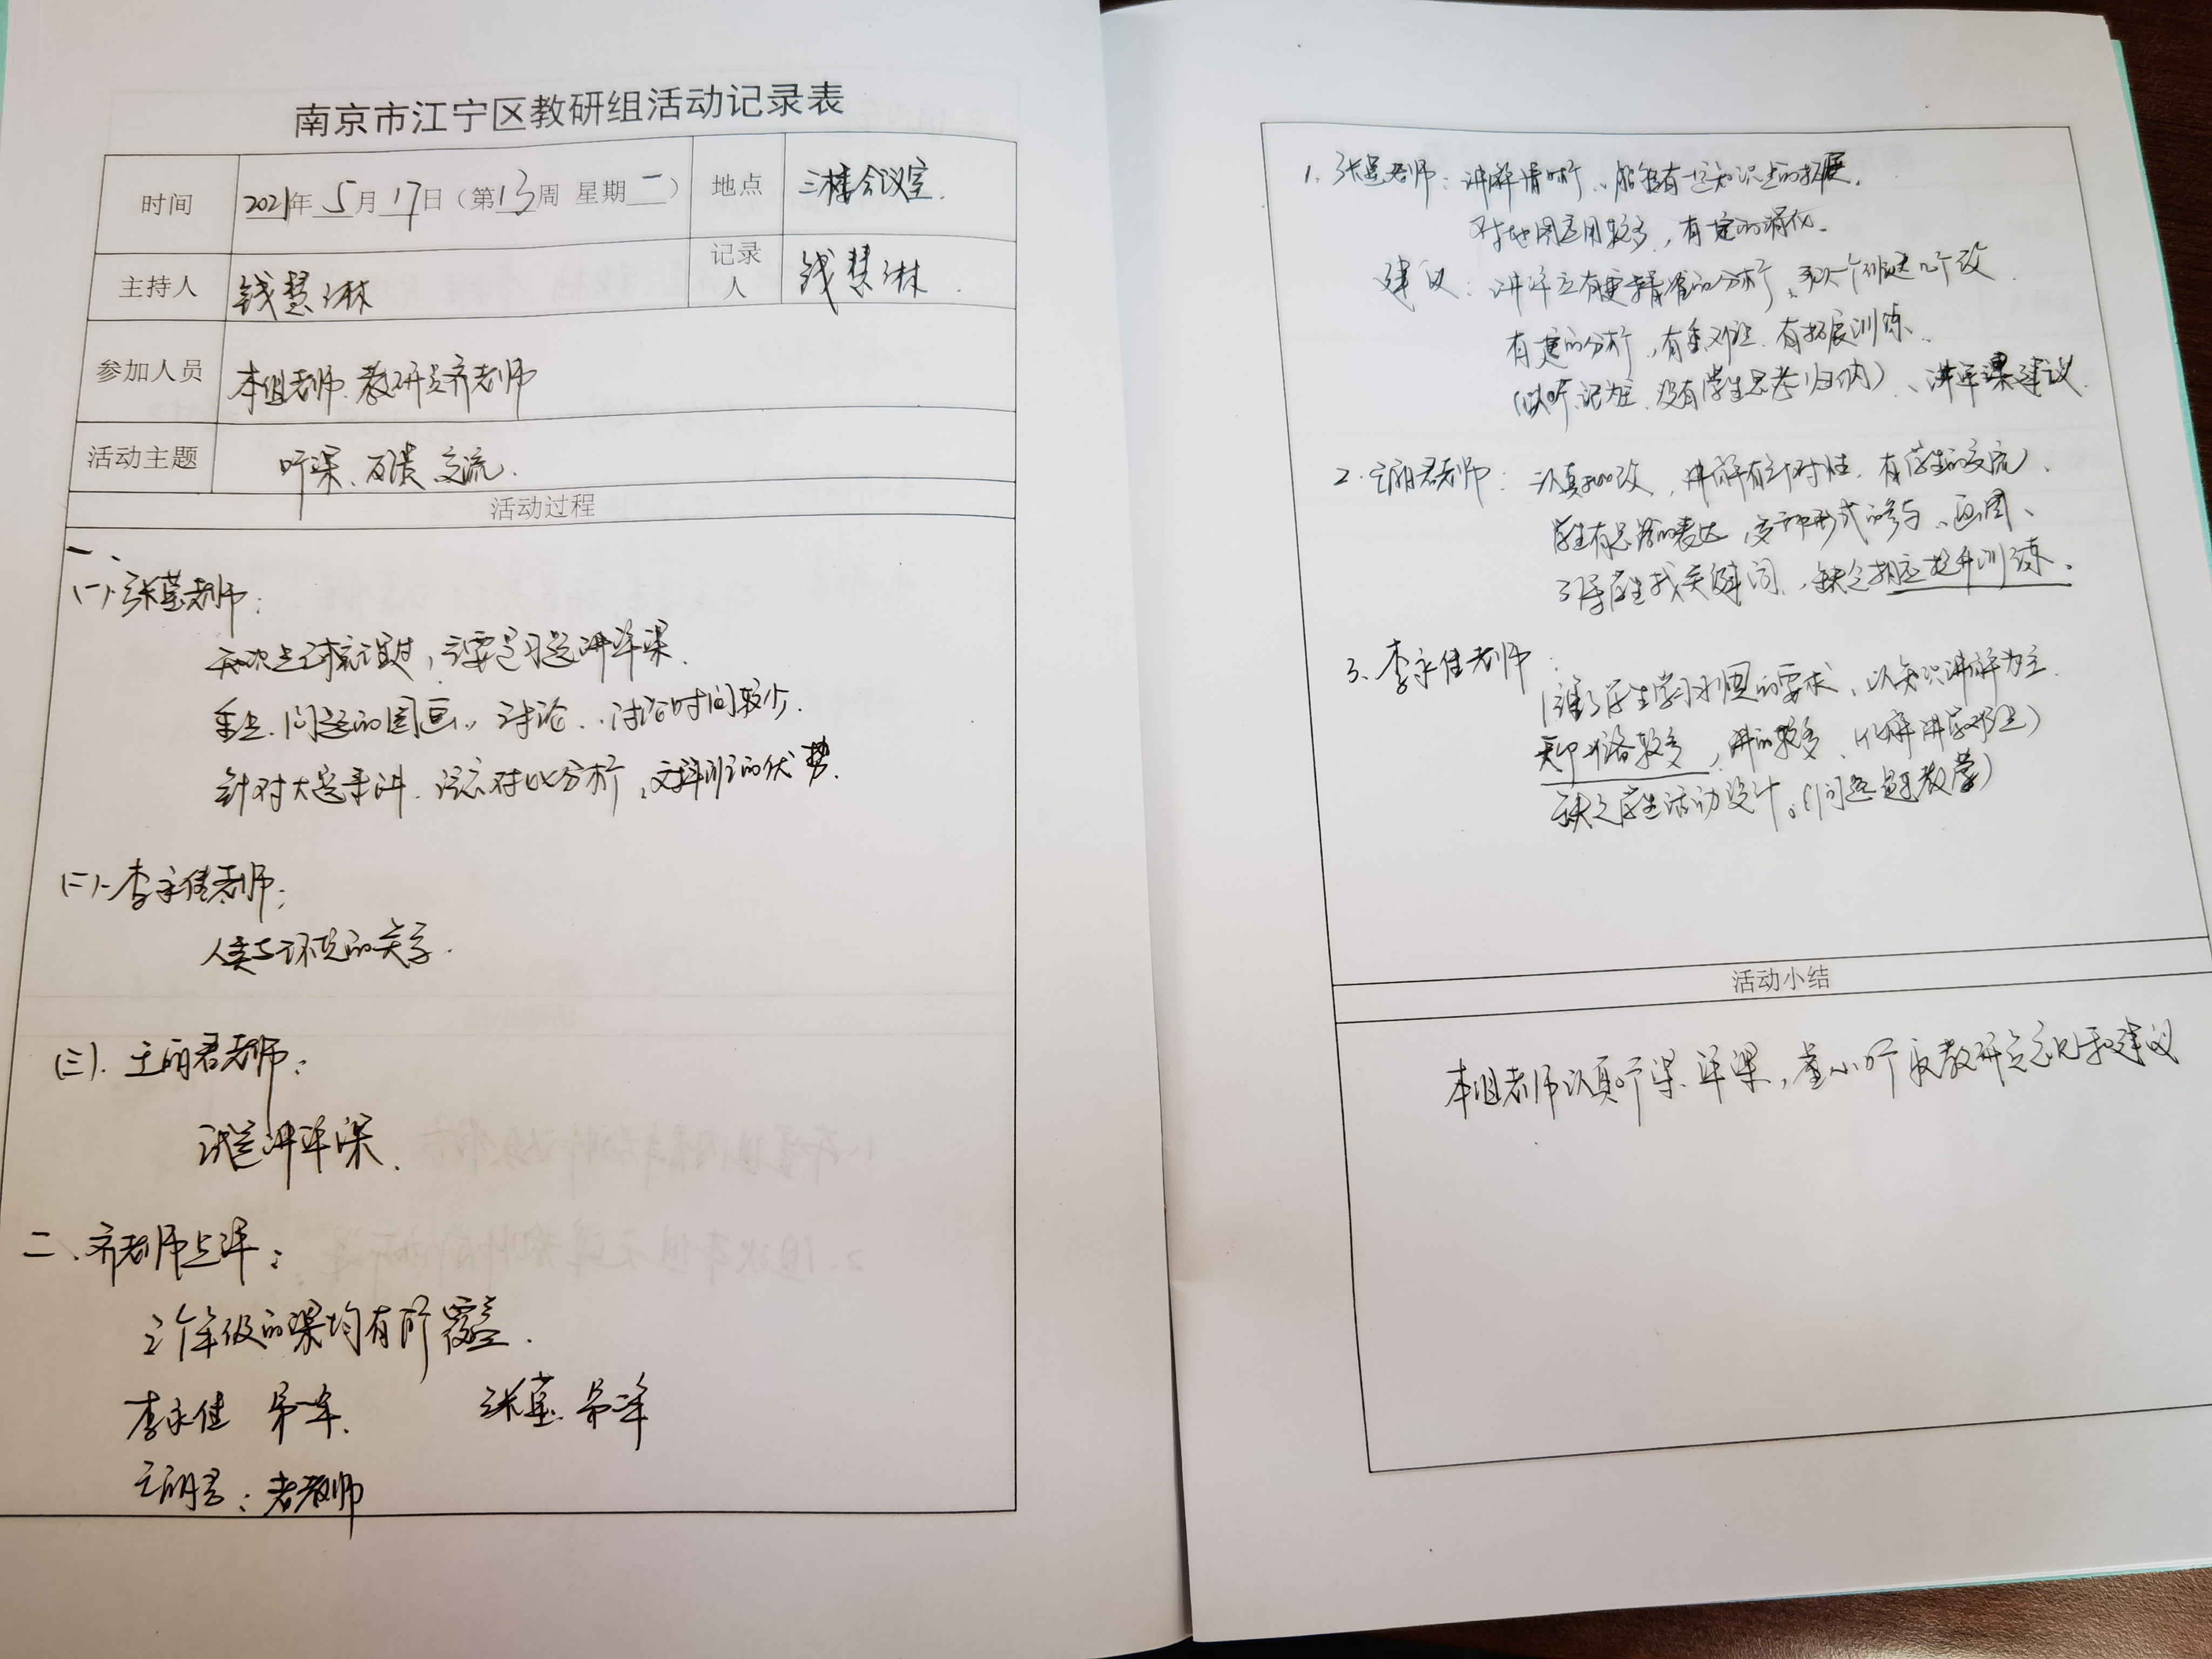 南京市江宁区教研组活动记录表
时间 2021年5月17日（第13周 星期一） 地点 三楼会议室.
主持人 钱慧琳 记录人 钱慧琳.
参加人员 本组老师、教研员齐老师
活动主题 听课、反馈、交流.
活动过程
一、
(一) 张莹老师:
知识点梳理过, 主要是习题讲评课.
重点、问题的圈画、讨论、讨论时间较少.
针对大题手册、注意对比分析,文科班的优势.
(二). 李永佳老师:
人类与环境的关系.
(三). 王丽君老师:
试卷讲评课.
二、齐老师点评:
三个年级的课均有所覆盖.
李永佳 第一年. 张莹 第一年
王丽君: 老教师
1. 张莹老师: 讲解清晰、能够有一些知识点的拓展.
对地图运用较多, 有一定的消化.
建议: 讲评应有更精准的分析、
有一定的分析, 有重难点、有拓展训练、
(以听、记为主、没有学生思考归纳)、讲评课建议.
2. 王丽君老师: 认真批改, 讲解有针对性、有学生的交流、
学生有思路的表达, 多种形式的参与、画图、
引导学生找关键词、缺乏相应提升训练.
3、李永佳老师:
(注重了学生学习习惯的要求、以知识讲解为主.
讲的较多、
缺乏学生活动设计。(问题式教学)
活动小结
本组老师认真听课、评课, 虚心听取教研员意见和建议